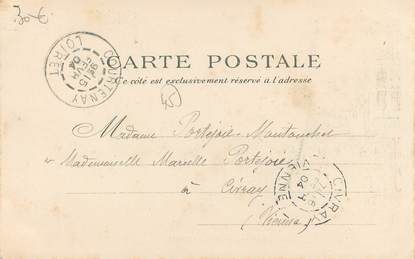 30 €
CARTE POSTALE
Ce côté est exclusivement réservé à l'adresse
COURTENAY
LOIRET
04
45
Madame Portejoie-Montouchet
Mademoiselle Marcelle Portejoie
à Civray
(Vienne)
CIVRAY
VIENNE
04